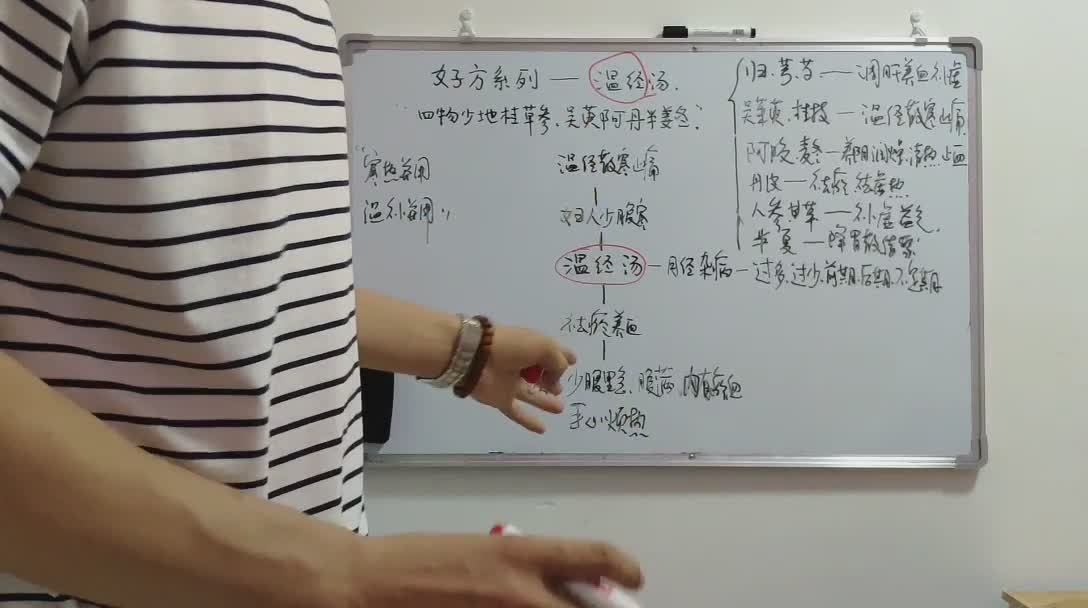 好方系列——温经汤.
"四物少地桂草参、吴萸阿丹半姜冬."
"寒热并用
温补并用"
温经散寒止痛
妇人少腹寒
温经汤—月经杂病—过多.过少.前期.后期.不定期
祛瘀养血
少腹里急、腹满、内有瘀血
手心烦热
归.芎.芍——调肝养血补虚
吴茱萸.桂枝—温经散寒止痛
阿胶.麦冬—养阴润燥.清热止血
丹皮—祛瘀
人参甘草—补虚益气.
半夏—降胃散结